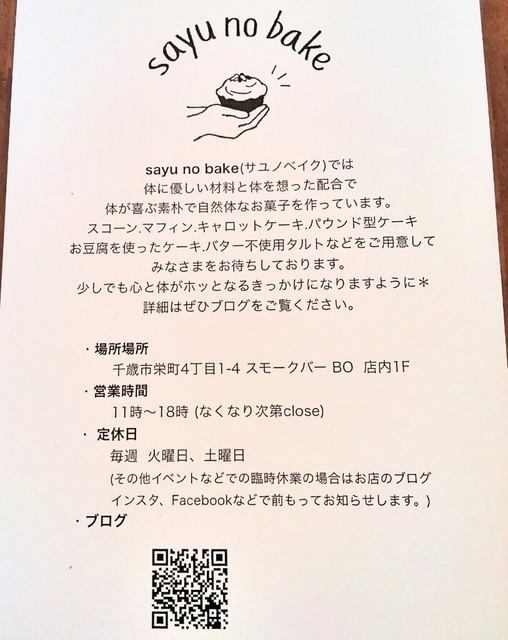 sayu no bake
sayu no bake(サユノベイク)では
体に優しい材料と体を想った配合で
体が喜ぶ素朴で自然体なお菓子を作っています。
スコーン.マフィン.キャロットケーキ.パウンド型ケーキ
お豆腐を使ったケーキ.バター不使用タルトなどをご用意して
みなさまをお待ちしております。
少しでも心と体がホッとなるきっかけになりますように＊
詳細はぜひブログをご覧ください。
・場所場所
千歳市栄町4丁目1-4 スモークバー BO 店内1F
・営業時間
11時〜18時 (なくなり次第close)
・ 定休日
毎週 火曜日、土曜日
(その他イベントなどでの臨時休業の場合はお店のブログ
インスタ、Facebookなどで前もってお知らせします。)
・ブログ